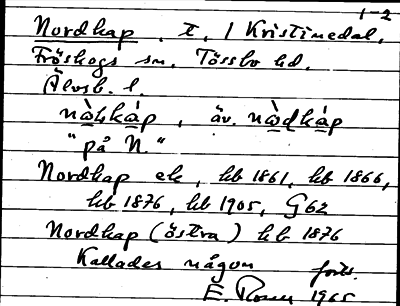 1-2
Nordkap . t. / Kristinedal,
Fröskogs sn. Tössbo hd.
Älvsb. l.
nὰkkáp , äv. nὰdkáp
"på N."
Nordkap ek, hb 1861, hb 1866,
hb 1876, hb 1905, G62
Nordkap (östra) hb 1876
Kallades någon forts.
E. Rosen 1965